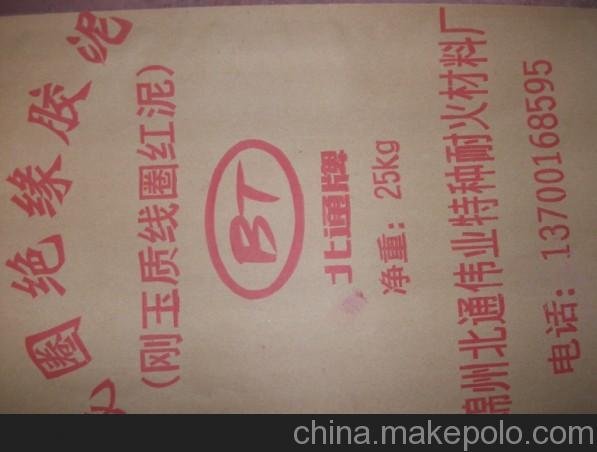 圈绝缘胶泥
(刚玉质线圈红泥)
BT
北通牌
净重：25kg
锦州北通伟业特种耐火材料厂
电话：13700168595
china.makepolo.com